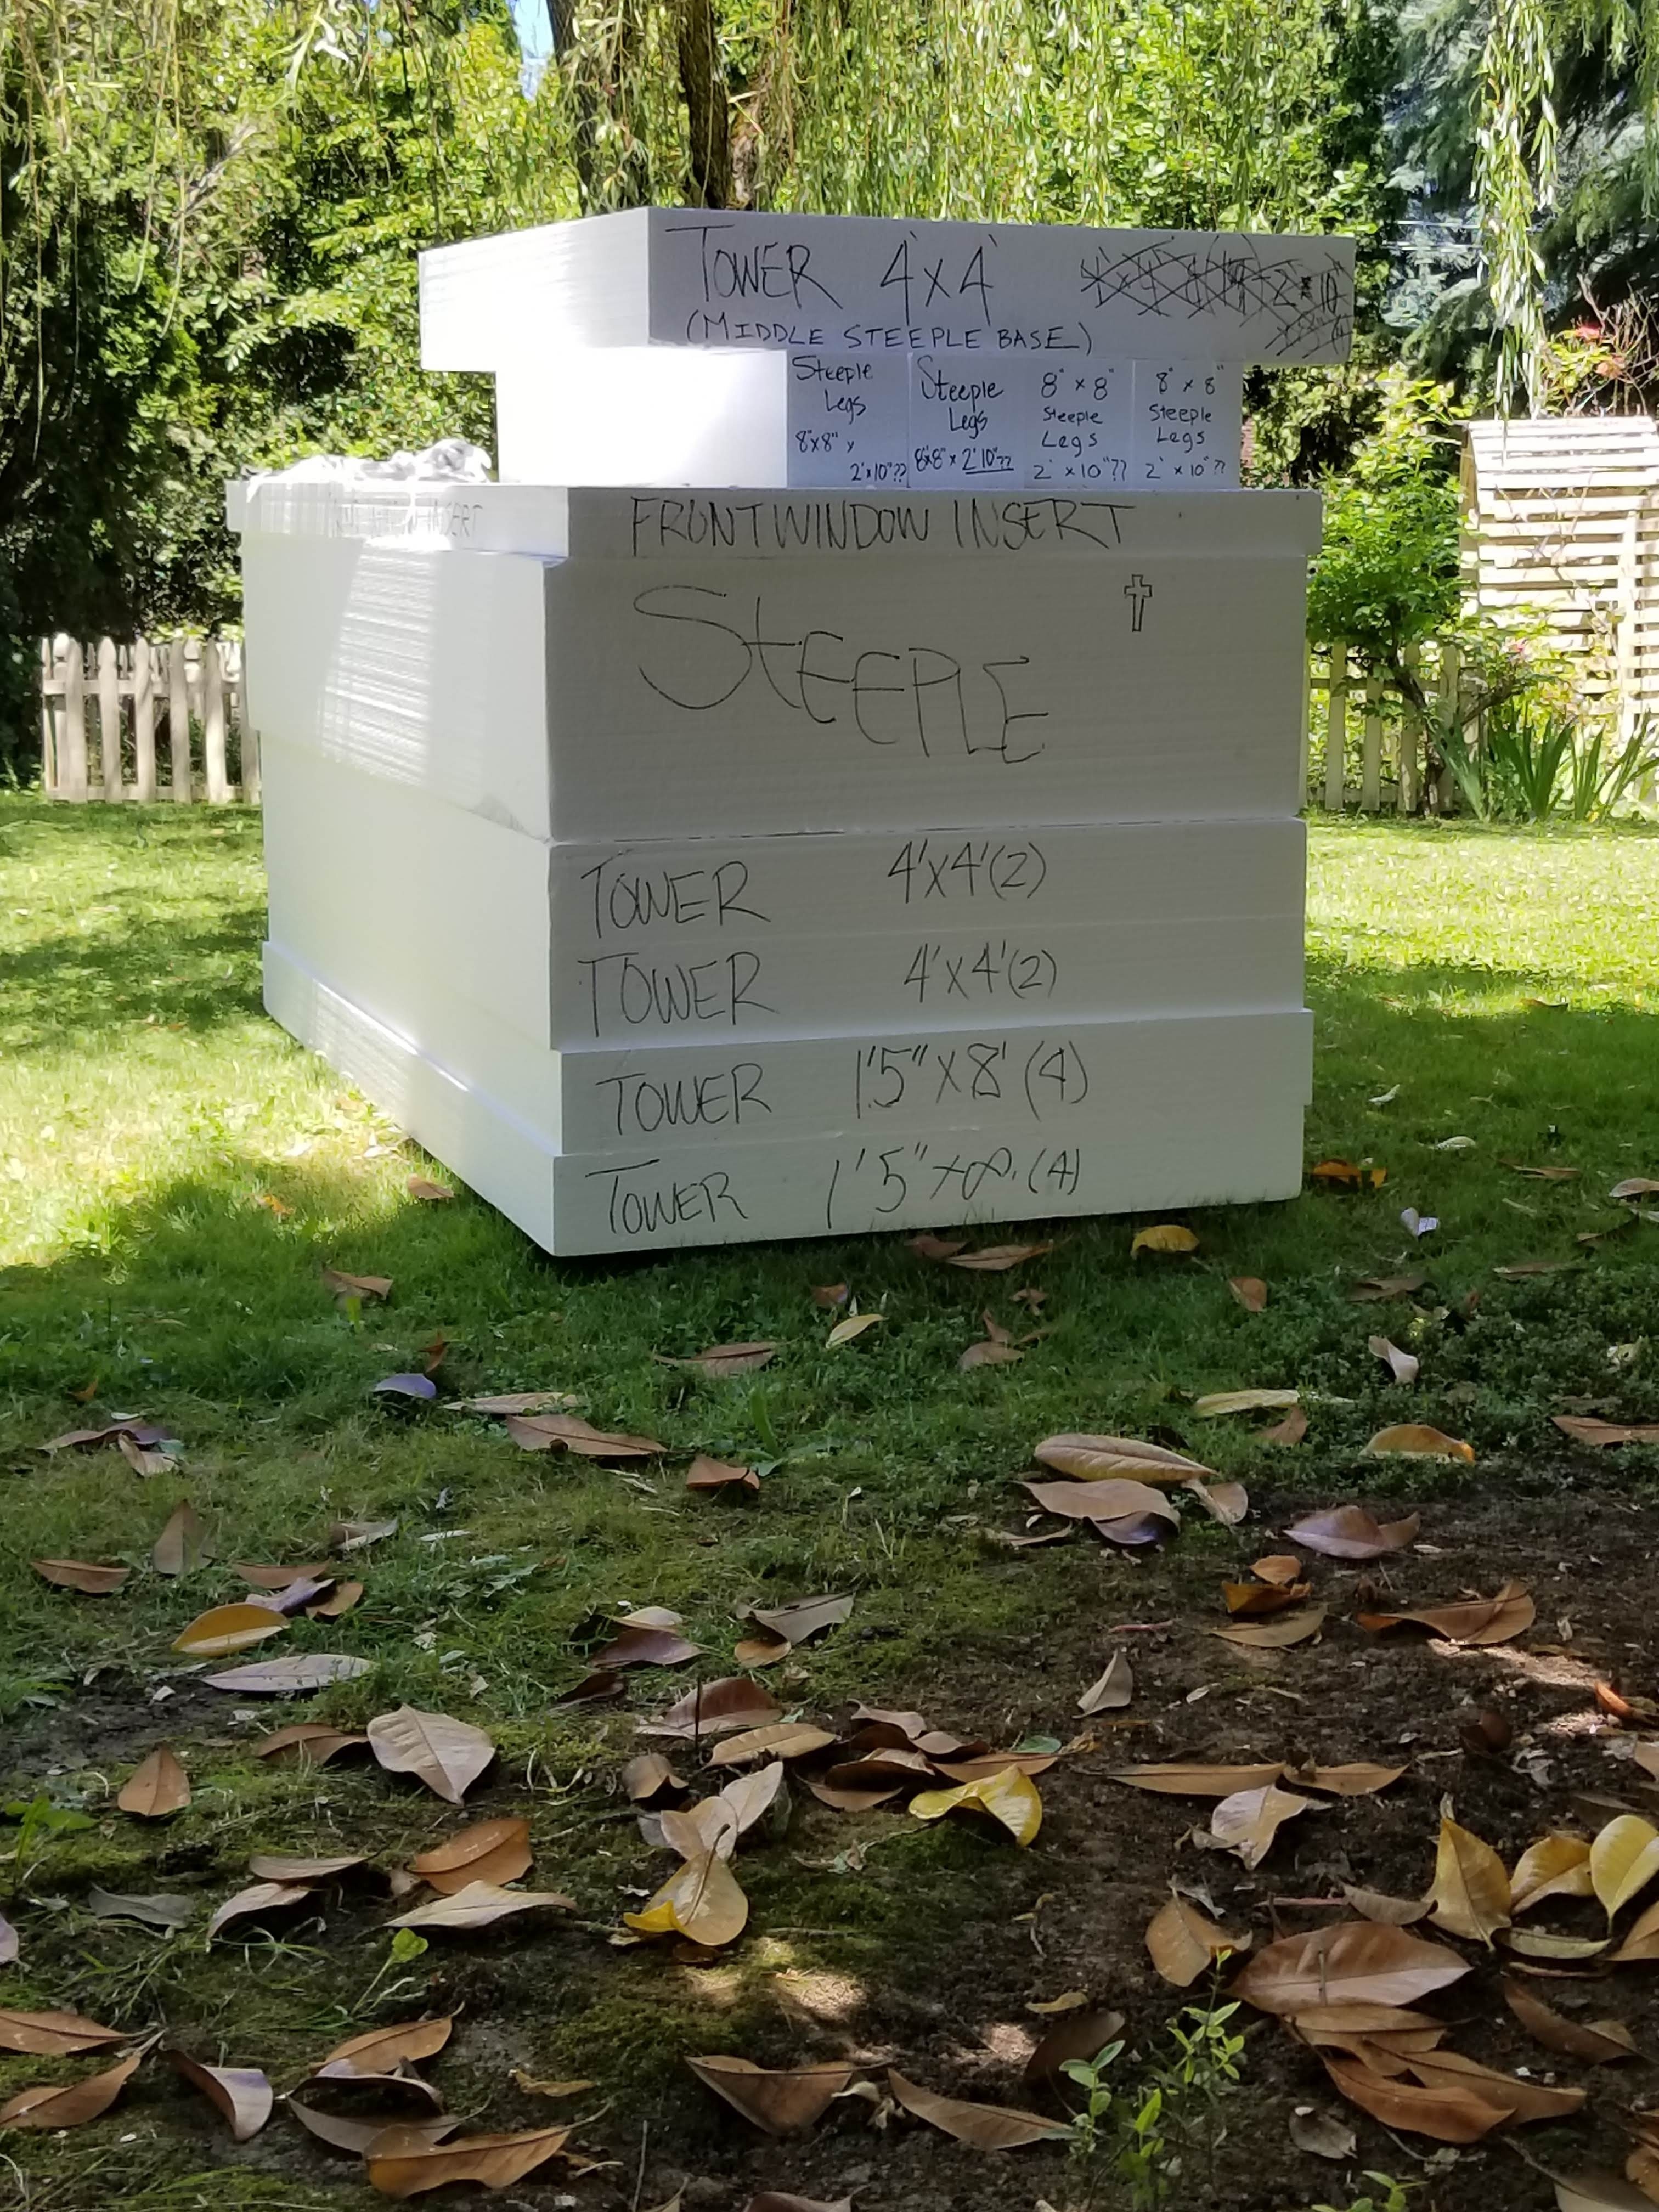 TOWER 4'x4'
(MIDDLE STEEPLE BASE)
Steeple
Legs
8"x8" x
2'x10"??
Steeple
Legs
8"x8" x 2'10"??
8" x 8"
Steeple
Legs
2' x10"??
8" x 8"
Steeple
Legs
2' x10"??
INSERT
FRONT WINDOW INSERT
StEEPLE
TOWER 4'x4'(2)
TOWER 4'x4'(2)
TOWER 1'5"x8' (4)
TOWER 1'5"x8' (4)